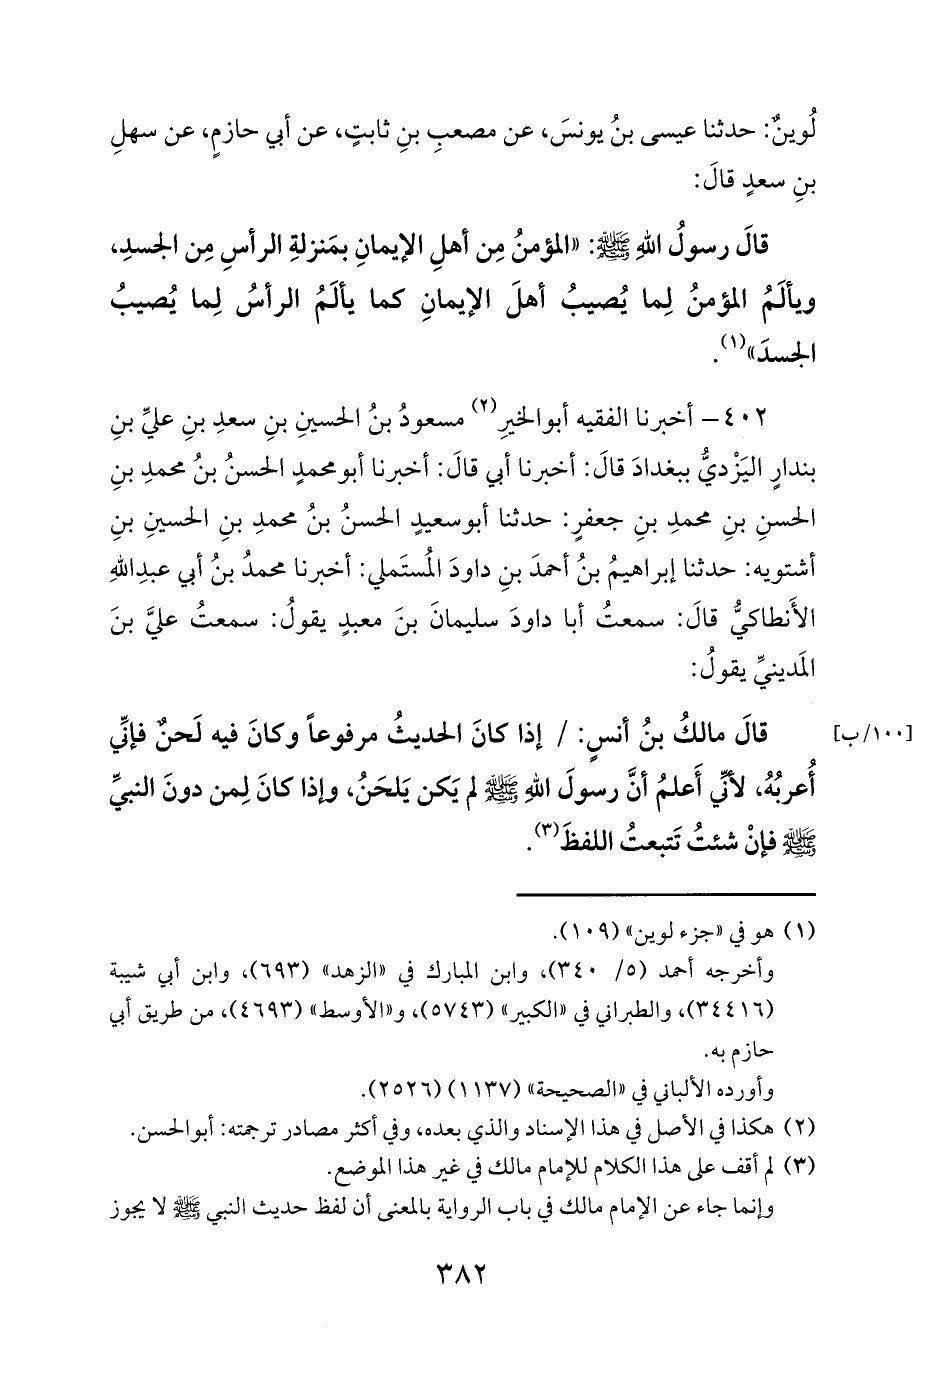 لُوينٌ: حدثنا عيسى بنُ يونسَ، عن مصعبِ بنِ ثابتٍ، عن أبي حازمٍ، عن سهلِ
بنِ سعدٍ قالَ:
قالَ رسولُ اللهِ ﷺ: «المؤمنُ مِن أهلِ الإيمانِ بمَنزلةِ الرأسِ مِن الجسدِ،
ويألَمُ المؤمنُ لِما يُصيبُ أهلَ الإيمانِ كما يألَمُ الرأسُ لِما يُصيبُ
الجسدَ»(١).
٤٠٢ – أخبرنا الفقيه أبوالخيرِ(٢) مسعودُ بنُ الحسينِ بنِ سعدِ بنِ عليِّ بنِ
بندارٍ اليَزْديُّ ببغدادَ قالَ: أخبرنا أبي قالَ: أخبرنا أبومحمدٍ الحسنُ بنُ محمدِ بنِ
الحسنِ بنِ محمدِ بنِ جعفرٍ: حدثنا أبوسعيدٍ الحسنُ بنُ محمدِ بنِ الحسينِ بنِ
أشتويه: حدثنا إبراهيمُ بنُ أحمدَ بنِ داودَ المُستَملي: أخبرنا محمدُ بنُ أبي عبدِاللهِ
الأَنطاكيُّ قالَ: سمعتُ أبا داودَ سليمانَ بنَ معبدٍ يقولُ: سمعتُ عليَّ بنَ
المَدينيِّ يقولُ:
قالَ مالكُ بنُ أنسٍ: / إذا كانَ الحديثُ مرفوعاً وكانَ فيه لَحنٌ فإنِّي [١٠٠/ب]
أُعربُهُ، لأنِّي أَعلمُ أنَّ رسولَ اللهِ ﷺ لم يَكن يَلحَنُ، وإذا كانَ لِمن دونَ النبيِّ
ﷺ فإنْ شئتُ تَتبعتُ اللفظَ(٣).
(١) هو في «جزء لوين» (١٠٩).
وأخرجه أحمد (٥/ ٣٤٠)، وابن المبارك في «الزهد» (٦٩٣)، وابن أبي شيبة
(٣٤٤١٦)، والطبراني في «الكبير» (٥٧٤٣)، و«الأوسط» (٤٦٩٣)، من طريق أبي
حازم به.
وأورده الألباني في «الصحيحة» (١١٣٧) (٢٥٢٦).
(٢) هكذا في الأصل في هذا الإسناد والذي بعده، وفي أكثر مصادر ترجمته: أبوالحسن.
(٣) لم أقف على هذا الكلام للإمام مالك في غير هذا الموضع.
وإنما جاء عن الإمام مالك في باب الرواية بالمعنى أن لفظ حديث النبي ﷺ لا يجوز
٣٨٢